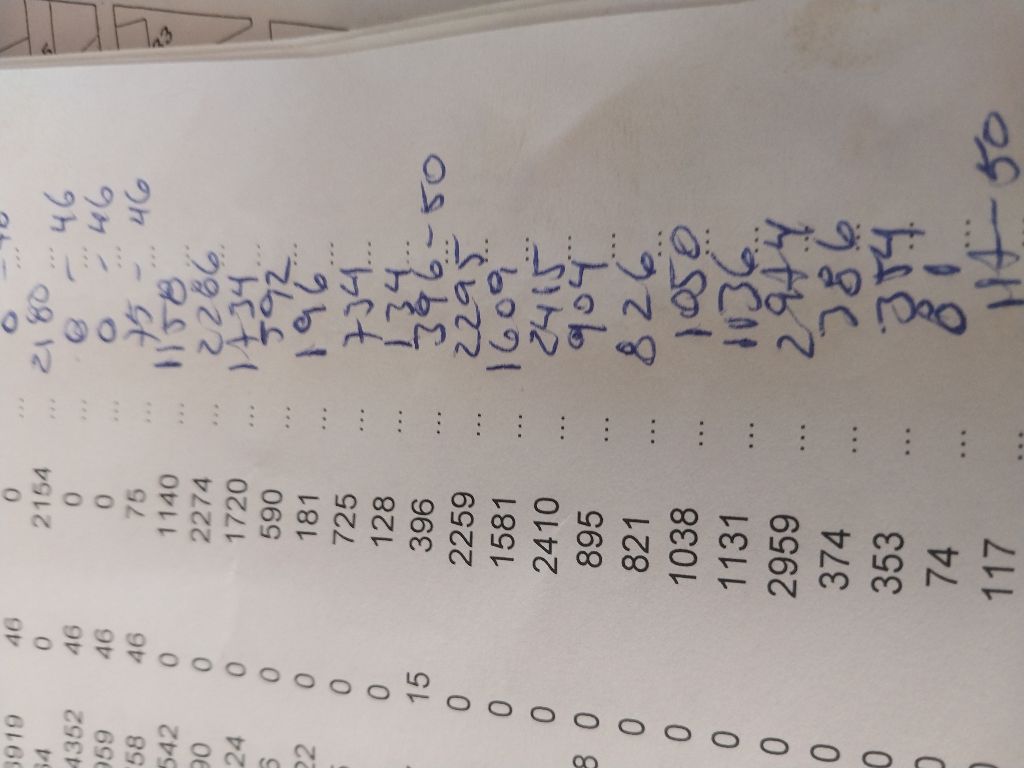 3919 46 0 ... 0
34 0 2154 ... 2180 ...
4352 46 0 ... 0 - ... 46
959 46 0 ... 0 - ... 46
58 46 75 ... 75 - ... 46
542 0 1140 ... 1158 ...
90 0 2274 ... 2286 ...
124 0 1720 ... 1734 ...
6 0 590 ... 592 ...
22 0 181 ... 196 ...
0 725 ... 734 ...
0 128 ... 134 ...
15 396 ... 396 - 50
0 2259 ... 2295 ...
0 1581 ... 1609 ...
0 2410 ... 2415 ...
8 0 895 ... 904 ...
0 821 ... 826 ...
0 1038 ... 1050 ...
0 1131 ... 1136 ...
0 2959 ... 2974 ...
0 374 ... 386 ...
0 353 ... 354 ...
0 74 ... 81 ...
117 ... 117 - 50